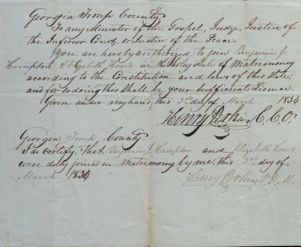 Georgia Troup County
To any Minister of the Gospel, Judge, Justice of
the Inferior Court or Justice of the Peace
You are hereby authorized to join Benjamin J
Hampton & Elizabeth in the Holy State of Matrimony
according to the Constitution and laws of this State
and for so doing this shall be your sufficient Licence
Given under my hand, this 3d day of March 1834
Henry C.C.O.
Georgia Troup County
I do certify, that Hampton and Elizabeth
were duly joined in Matrimony by me, this day of
March 1834
Henry